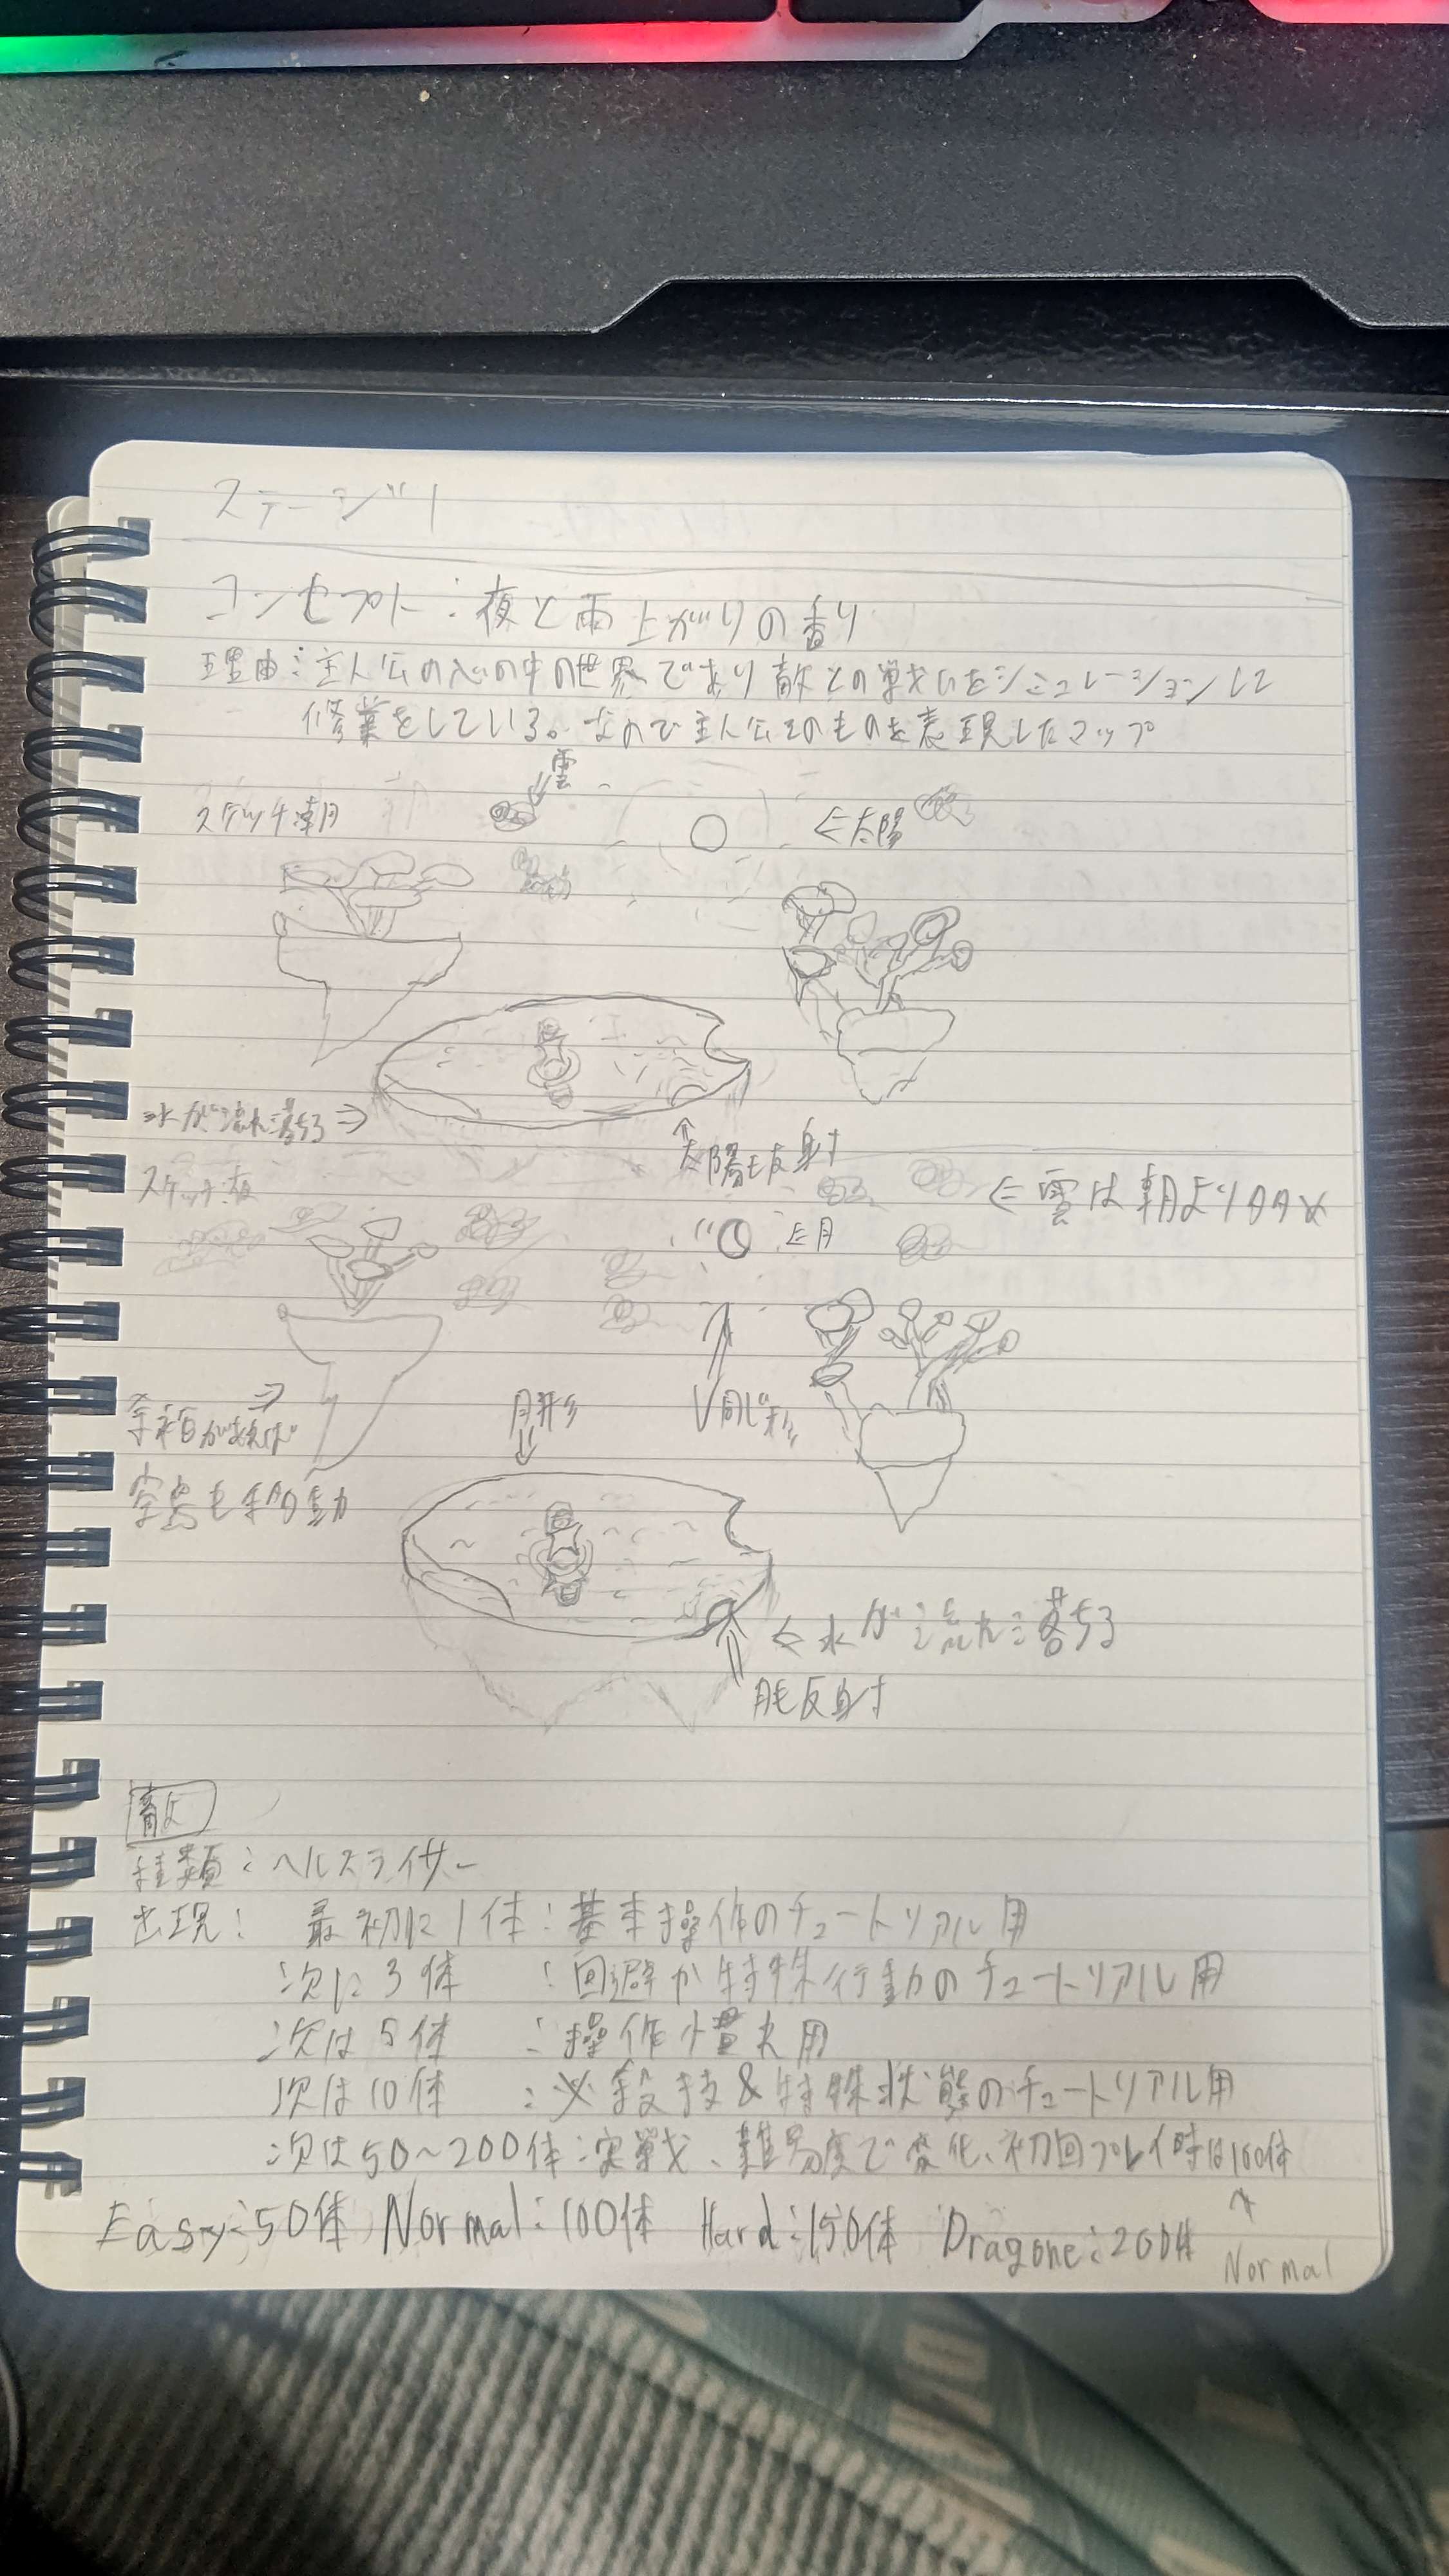 ステージ1
コンセプト：夜と雨上がりの香り
理由：主人公の心の中の世界であり敵との戦いをシミュレーションして
修業をしている。なので主人公そのものを表現したマップ
雲
スケッチ朝
太陽
水が流れ落ちる
太陽も反射
スケッチ夜
雲は朝より多め
月
月形
同じ形
余裕があれば
空島も移動
水が流れ落ちる
月も反射
敵
種類：ヘルスライサー
出現： 最初に1体：基本操作のチュートリアル用
次に3体 ：回避か特殊行動のチュートリアル用
次は5体 ：操作慣れ用
次は10体 ：必殺技&特殊状態のチュートリアル用
次は50~200体：実戦、難易度で変化、初回プレイ時は100体
Easy：50体 Normal：100体 Hard：150体 Dragone：200体
Normal